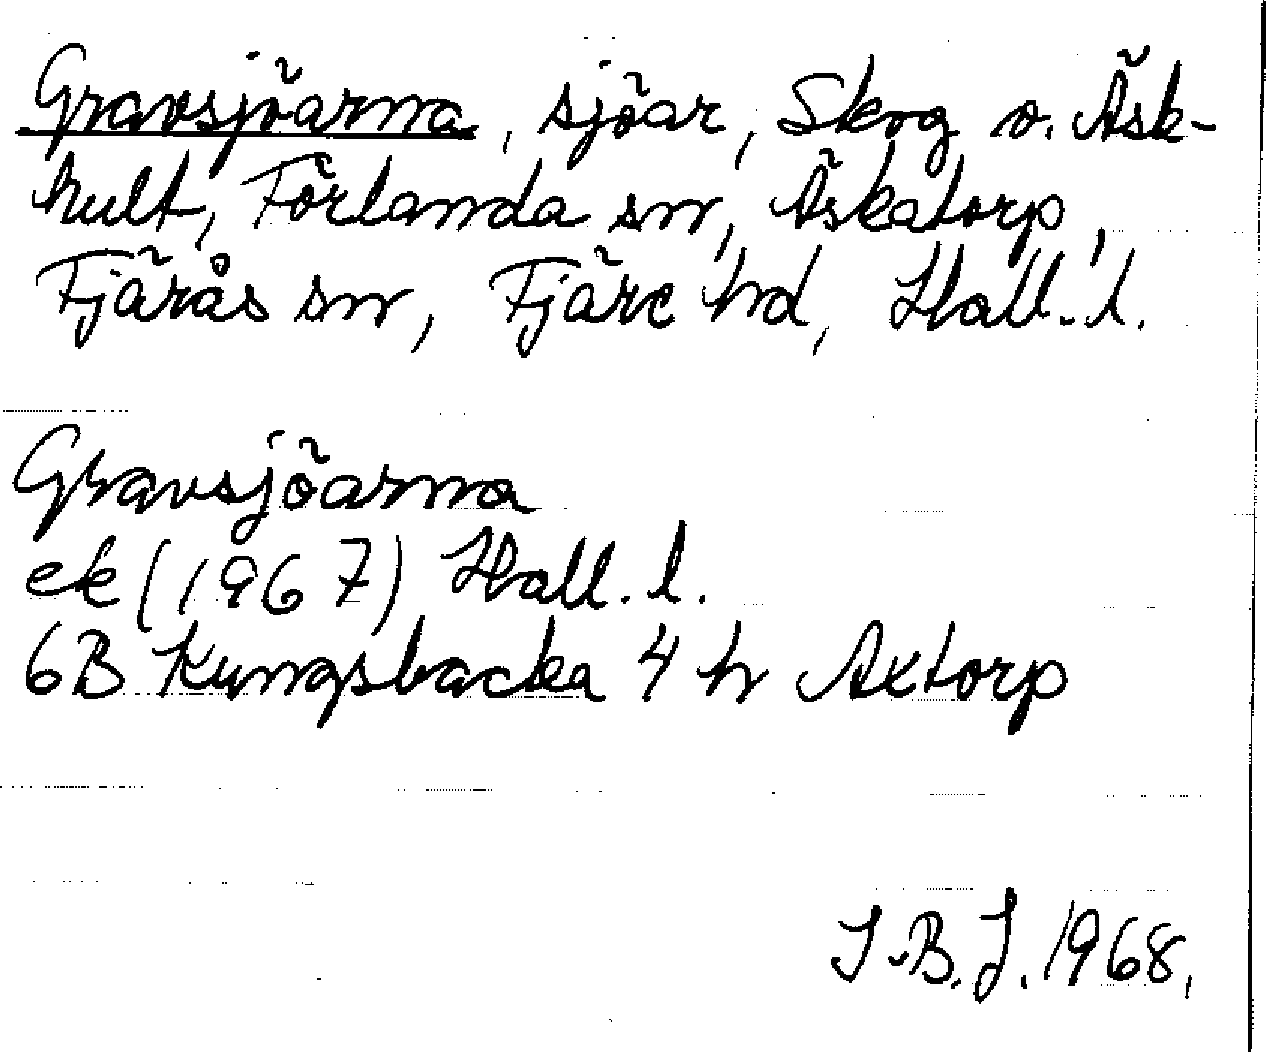 Gravsjöarna, sjöar, Skog o. Äsk-
hult, Förlanda sn, Äskatorp,
Fjärås sn, Fjäre hd, Hall. l.
Gravsjöarna
ek (1967) Hall. l.
6B Kungsbacka 4 h Axtorp
I.B.J. 1968.